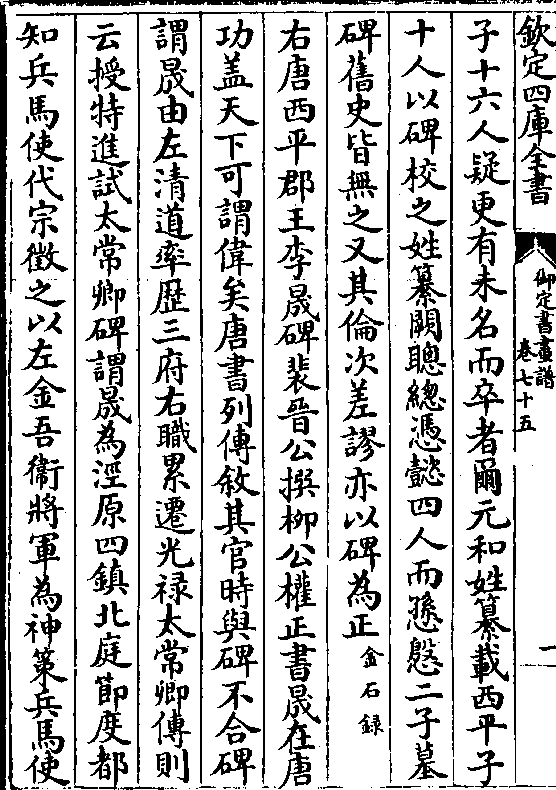 欽定四庫全書
御定書畫譜
卷七十五
一
子十六人疑更有未名而卒者爾元和姓纂載西平子
十人以碑校之姓纂闕聰總憑懿四人而愻慇二子墓
碑舊史皆無之又其倫次差謬亦以碑為正金石録
右唐西平郡王李晟碑裴晉公撰柳公權正書晟在唐
功盖天下可謂偉矣唐書列傳敘其官時與碑不合碑
謂晟由左清道率歷三府右職累遷光禄太常卿傳則
云授特進試太常卿碑謂晟為涇原四鎮北庭節度都
知兵馬使代宗徵之以左金吾衛將軍為神策兵馬使